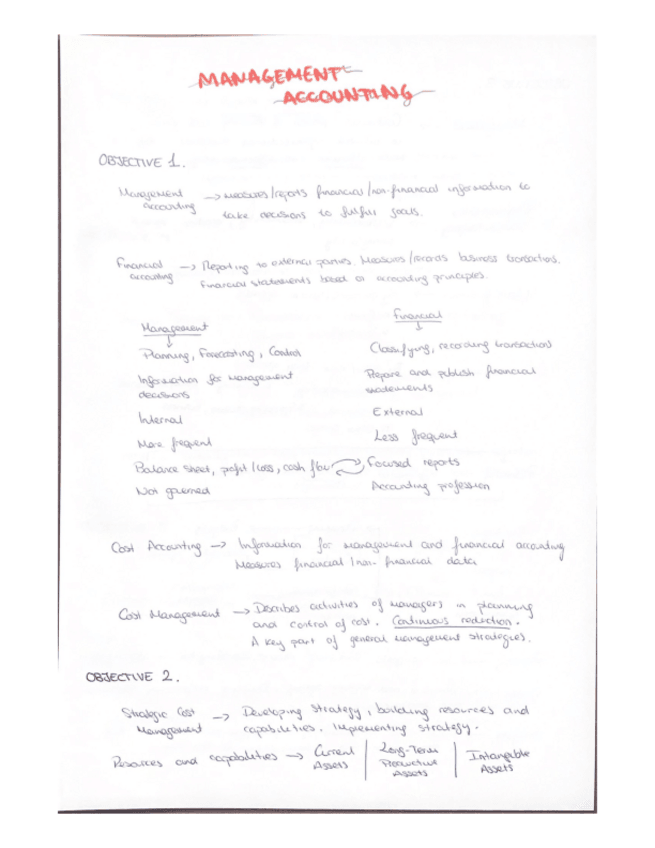 MANAGEMENT
ACCOUNTING
OBJECTIVE 1.
Management accounting → measures/reports financial/non-financial information to
take decisions to fulfill goals.
Financial accounting → Reporting to external parties. Measures/records business transactions.
Financial statements based on accounting principles.
Management
Financial
Planning, Forecasting, Control
Classifying, recording transactions
Information for management
decisions
Prepare and publish financial
statements
Internal
External
More frequent
Less frequent
Balance sheet, profit/loss, cash flow
Focused reports
Not governed
Accounting profession
Cost Accounting → Information for management and financial accounting
Measures financial/non-financial data
Cost Management → Describes activities of managers in planning
and control of cost. Continuous reduction.
A key part of general management strategies.
OBJECTIVE 2.
Strategic Cost Management → Developing strategy, building resources and
capabilities. Implementing strategy.
Resources and capabilities → Current Assets | Long-Term Productive Assets | Intangable Assets